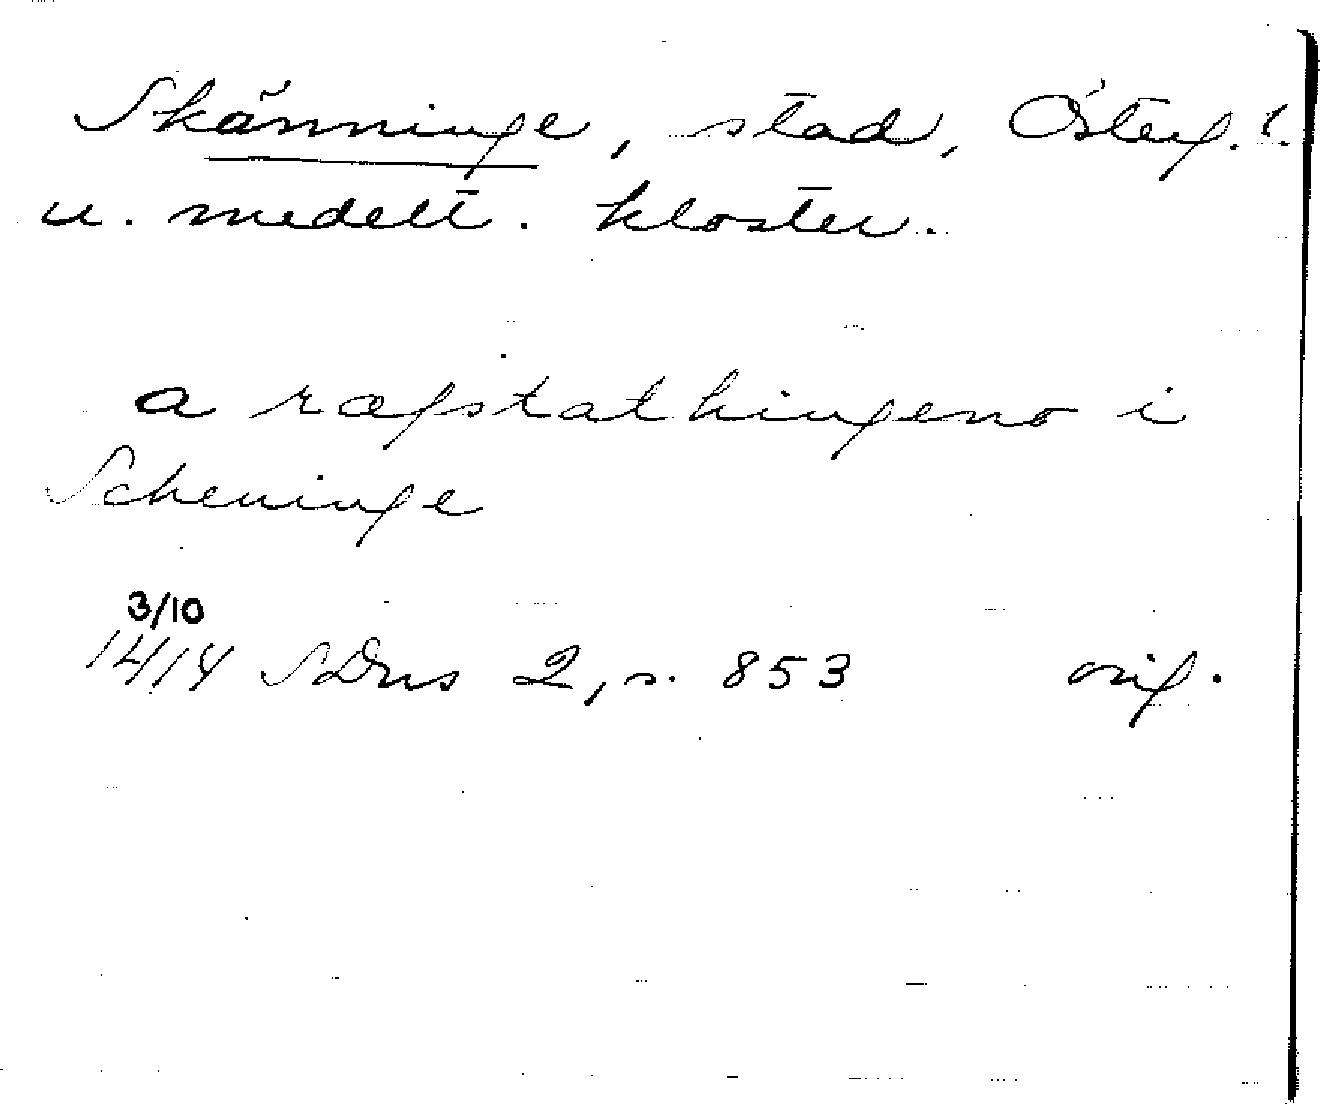 Skänninge, stad, Österg. l.
u. medelt. kloster.
a ræfstathingeno i
Scheninge
3/10
1414 SDns 2, s. 853 orig.